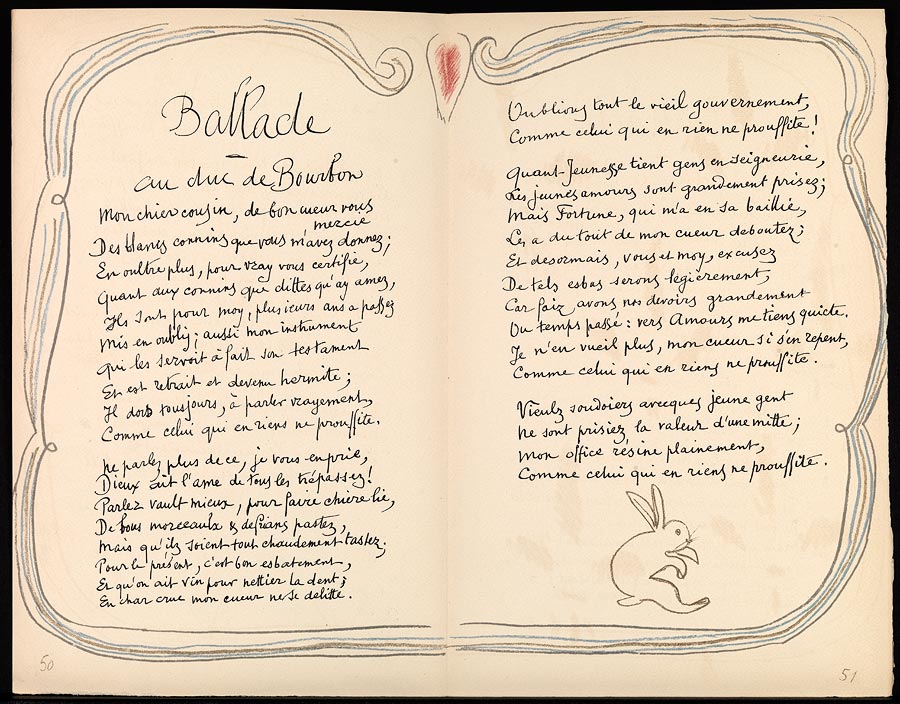 Ballade
au duc de Bourbon
Mon chier cousin, de bon cueur vous
mercie
Des blancs connins que vous m'avez donnez;
En oultre plus, pour vray vous certifie,
Quant aux connins que dittes qu'ay amez,
Ilz sont pour moy, plusieurs ans a passez
Mis en oubly; aussi mon instrument
Qui les servoit a fait son testament
Et est retrait et devenu hermite;
Il dort tousjours, à parler vrayement,
Comme celui qui en riens ne prouffite.
Ne parlez plus de ce, je vous en prie,
Dieux ait l'ame de tous les trépassez!
Parlez vault mieux, pour faire chiere lie,
De bons morceaulx & de frians pastez,
Mais qu'ilz soient tout chaudement tastez;
Pour le présent, c'est bon esbatement,
Et qu'on ait vin pour nettier la dent;
En char crue mon cueur ne se delitte.
Oublions tout le vieil gouvernement,
Comme celui qui en rien ne prouffite!
Quant Jeunesse tient gens en seigneurie,
Les jeunes amours sont grandement prisez;
Mais Fortune, qui m'a en sa baillie,
Les a du tout de mon cueur deboutez;
Et desormais, vous et moy, excusez
De tels esbas serons legièrement,
Car faiz avons nos devoirs grandement
Ou temps passé: vers Amours me tiens quicte.
Je n'en vueil plus, mon cueur si s'en repent,
Comme celui qui en riens ne prouffite.
Vieulz soudoiers avecques jeune gent
Ne sont prisiez la valeur d'une mitte;
Mon office résine plainement,
Comme celui qui en riens ne prouffite.
50
51